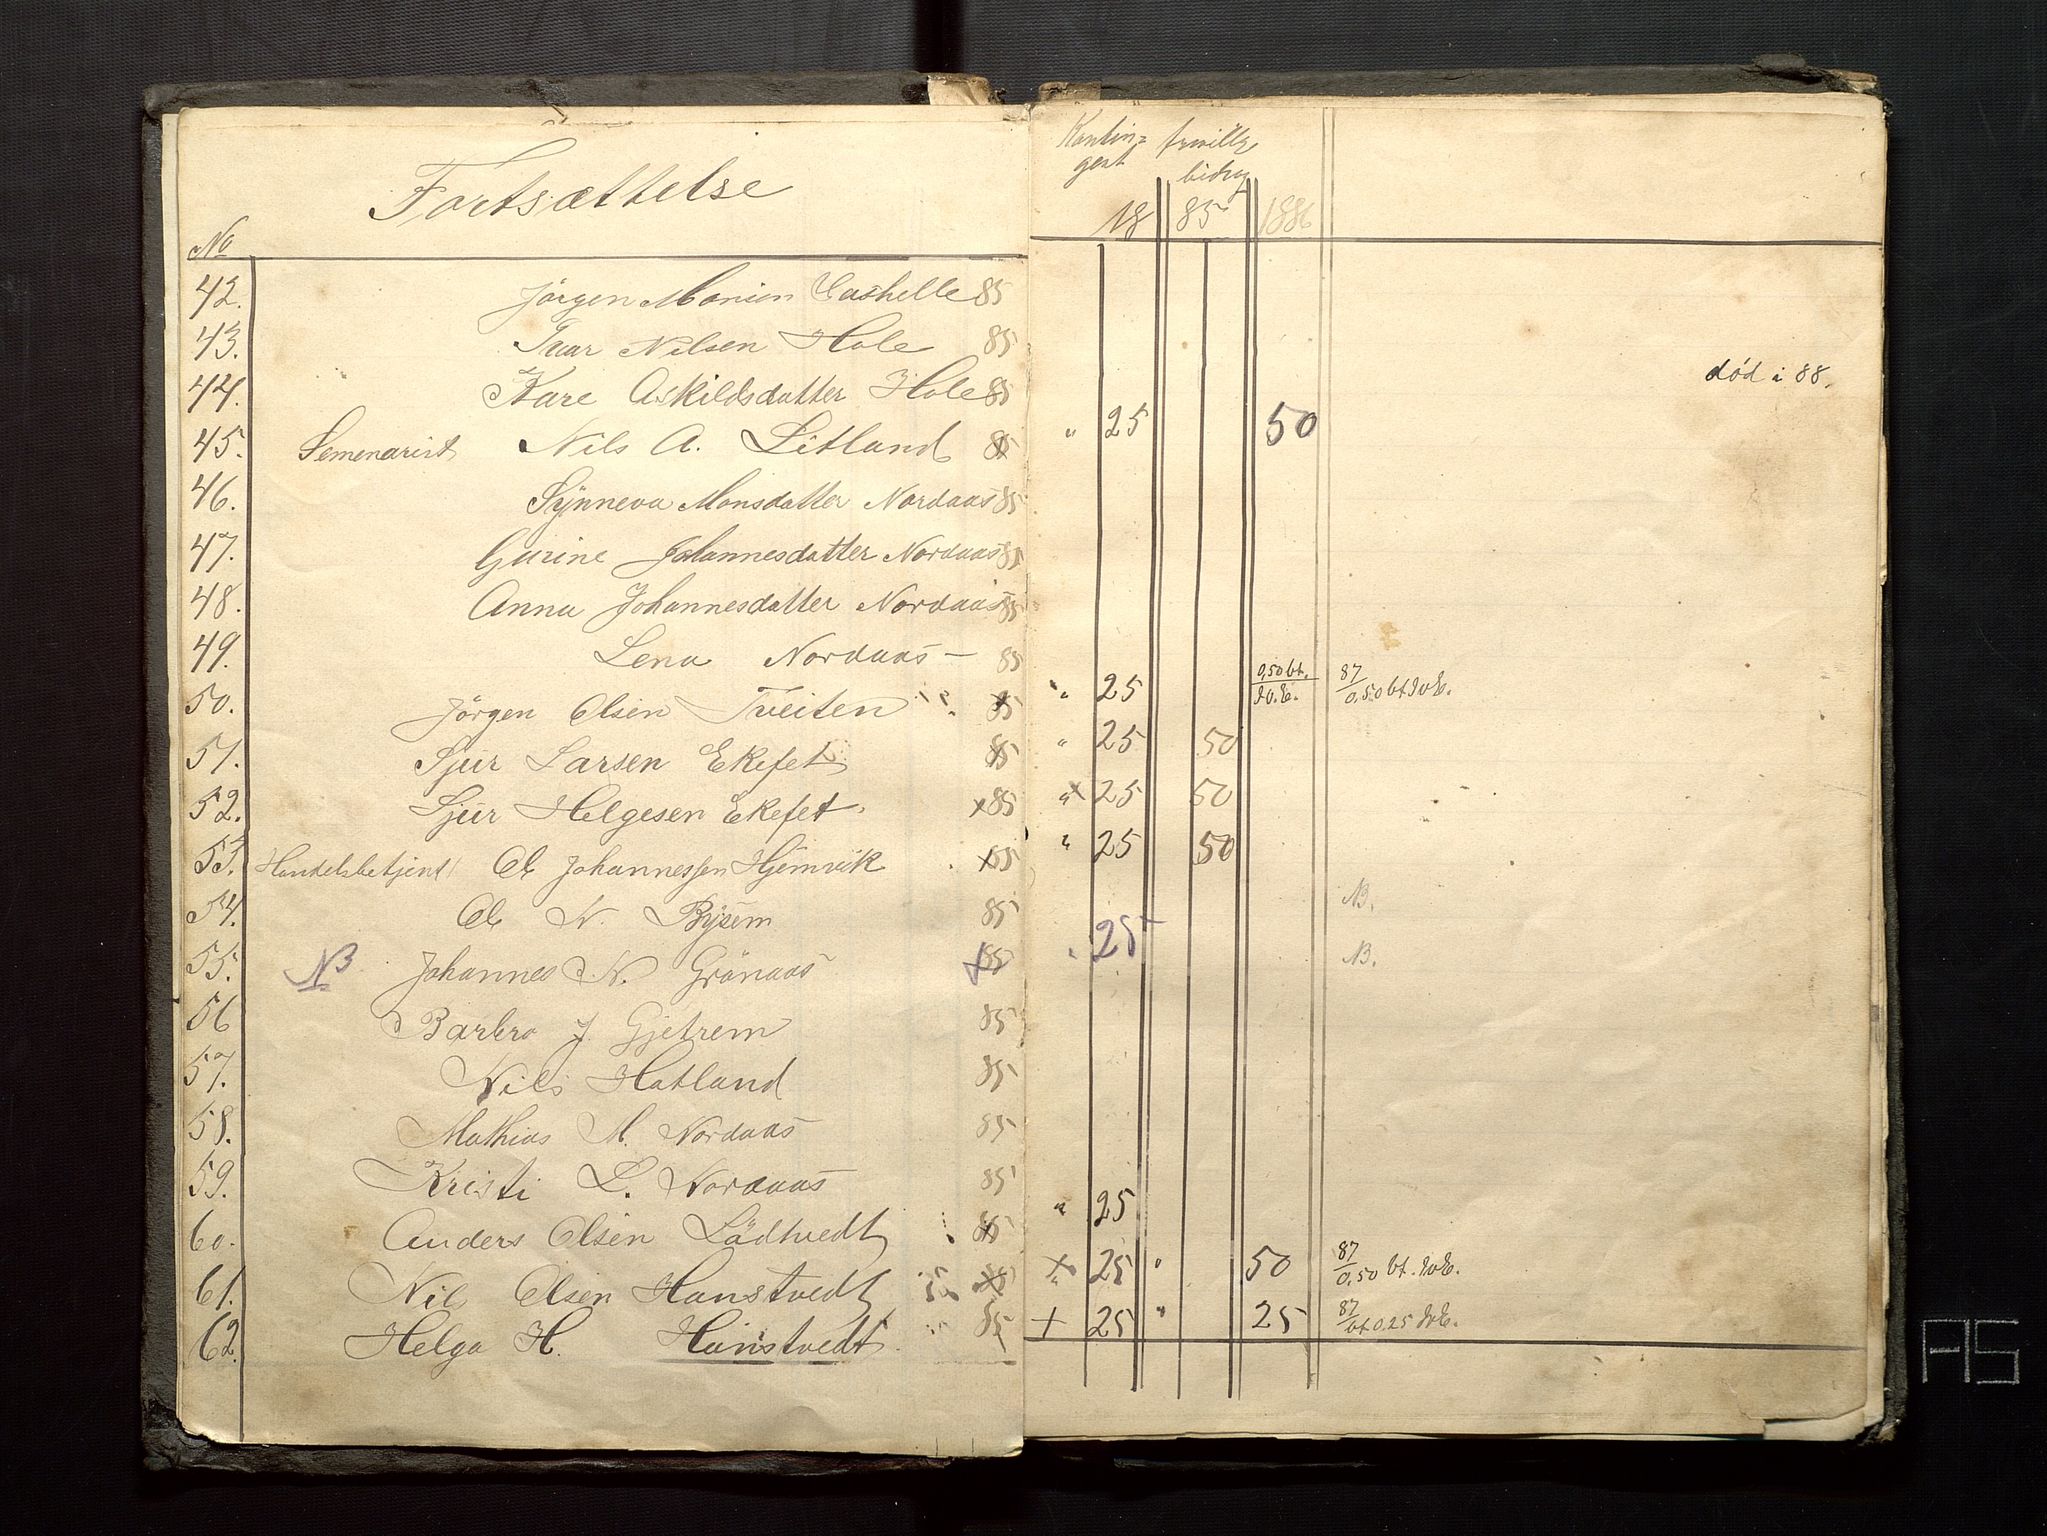 Fortsættelse
No
42. Jörgen Monsen 85
43. Ivar Nilsen Hole 85
44. Kare Askildsdatter Hole 85
45. Semenarist Nils A. Litland 85
46. Synneva Monsdatter Nordaas 85
47. Gurine Johannesdatter Nordaas 85
48. Anna Johannesdatter Nordaas 85
49. Lena Nordaas — 85
50. Jörgen Olsen Tveiten 85
51. Sjur Larsen Ekefet 85
52. Sjur Helgesen Ekefet x85
53. Handelsbetjent Ole Johannessen Hjemvik x85
54. Ole N. Bysem 85
55. NB Johannes N. Grönaas 85
56 Barbro J. Gjetrem 85
57. Nils Hatland 85
58. Mathias M. Nordaas 85
59. Kristi L. Nordaas 85
60. Anders Olsen Lödtvedt 85
61. Nils Olsen Hanstvedt 85
62. Helga H. Hanstvedt 85
Kontin= frivillig
gent bidrag
18 85 1886
død i 88.
" 25 50
" 25 0,50 bt. 87
0,50 bt
" 25 50
" x 25 50
" 25 50
NB.
" 25 NB.
" 25
x " 25 " 50 87
0,50 bt.
+ 25 " 25 87
bt 0.25
AS